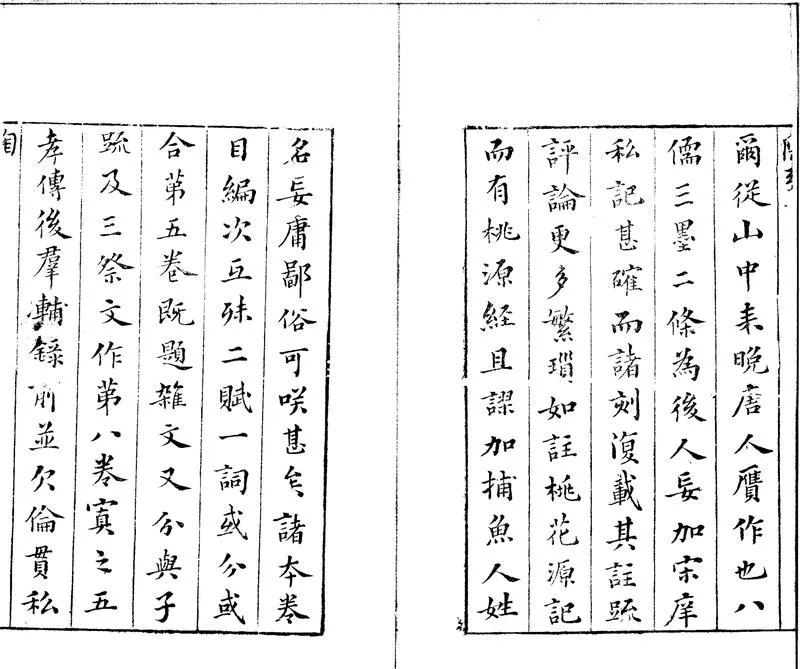 爾從山中來晚唐人贋作也八
儒三墨二條為後人妄加宋庠
私記甚確而諸刻復載其註䟽
評論更多繁瑣如註桃花源記
而有桃源經且謬加捕魚人姓
名妄庸鄙俗可咲甚矣諸本卷
目編次互殊二賦一詞或分或
合第五卷既題雜文又分與子
䟽及三祭文作第八卷寘之五
孝傳後羣輔錄前並欠倫貫私